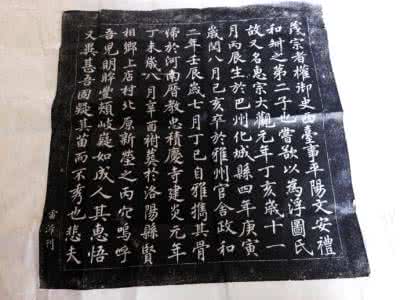 茂宗者權御史西臺事平陽文安禮
和卿之第二子也嘗欲以為浮圖氏
故又名惠宗大觀元年丁亥歲十一
月丙辰生於巴州化城縣四年庚寅
歲閏八月己亥卒於雅州官舍政和
二年壬辰歲七月丁巳自雅攜其骨
歸於河南厝教忠積慶寺建炎元年
丁未歲八月辛酉祔葬於洛陽縣賢
相鄉上店村北原新塋之丙穴嗚呼
吾兒明眸豐頰岐嶷如成人其惠悟
又異甚吾固疑其苗而不秀也悲夫
雷沛刊